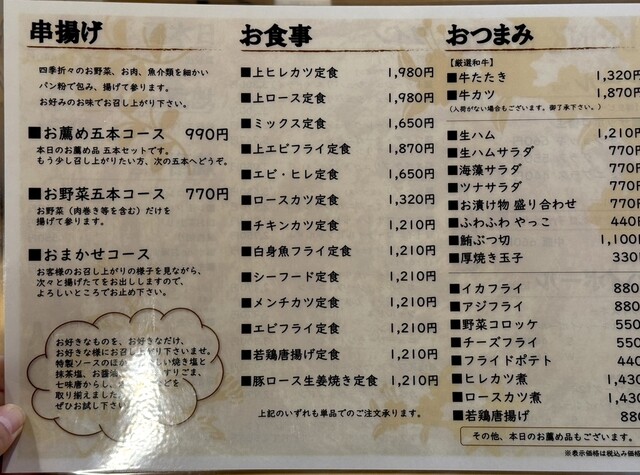 串揚げ
四季折々のお野菜、お肉、魚介類を細かい
パン粉で包み、揚げて参ります。
お好みのお味でお召し上がり下さい。
■お薦め五本コース 990円
本日のお薦め品 五本セットです。
もう少し召し上がりたい方、次の五本へどうぞ。
■お野菜五本コース 770円
お野菜（肉巻き等を含む）だけを
揚げて参ります。
■おまかせコース
お客様のお召し上がりの様子を見ながら、
次々と揚げたてをお出ししますので、
よろしいところでお止め下さい。
お好きなものを、お好きなだけ、
お好きな様にお召し上がり下さいませ。
特製ソースのほか
しい焼き塩と
抹茶塩、お醤油
すりごま、
七味唐からし、
などを
取り揃えました
ぜひお試し下さい
お食事
■上ヒレカツ定食 1,980円
■上ロース定食 1,980円
■ミックス定食 1,650円
■上エビフライ定食 1,870円
■エビ・ヒレ定食 1,650円
■ロースカツ定食 1,320円
■チキンカツ定食 1,210円
■白身魚フライ定食 1,210円
■シーフード定食 1,210円
■メンチカツ定食 1,210円
■エビフライ定食 1,210円
■若鶏唐揚げ定食 1,210円
■豚ロース生姜焼き定食 1,210円
上記のいずれも単品でのご注文承ります。
おつまみ
【厳選和牛】
■牛たたき 1,320円
■牛カツ 1,870円
（入荷がない場合もございます。御了承下さい。）
■生ハム 1,210円
■生ハムサラダ 770円
■海藻サラダ 770円
■ツナサラダ 770円
■お漬け物 盛り合わせ 770円
■ふわふわ やっこ 440円
■鮪ぶつ切 1,100
■厚焼き玉子 330
■イカフライ 880
■アジフライ 880
■野菜コロッケ 550
■チーズフライ 550
■フライドポテト 440
■ヒレカツ煮 1,430
■ロースカツ煮 1,430
■若鶏唐揚げ 880
その他、本日のお薦め品もございます。
※表示価格は税込み価格